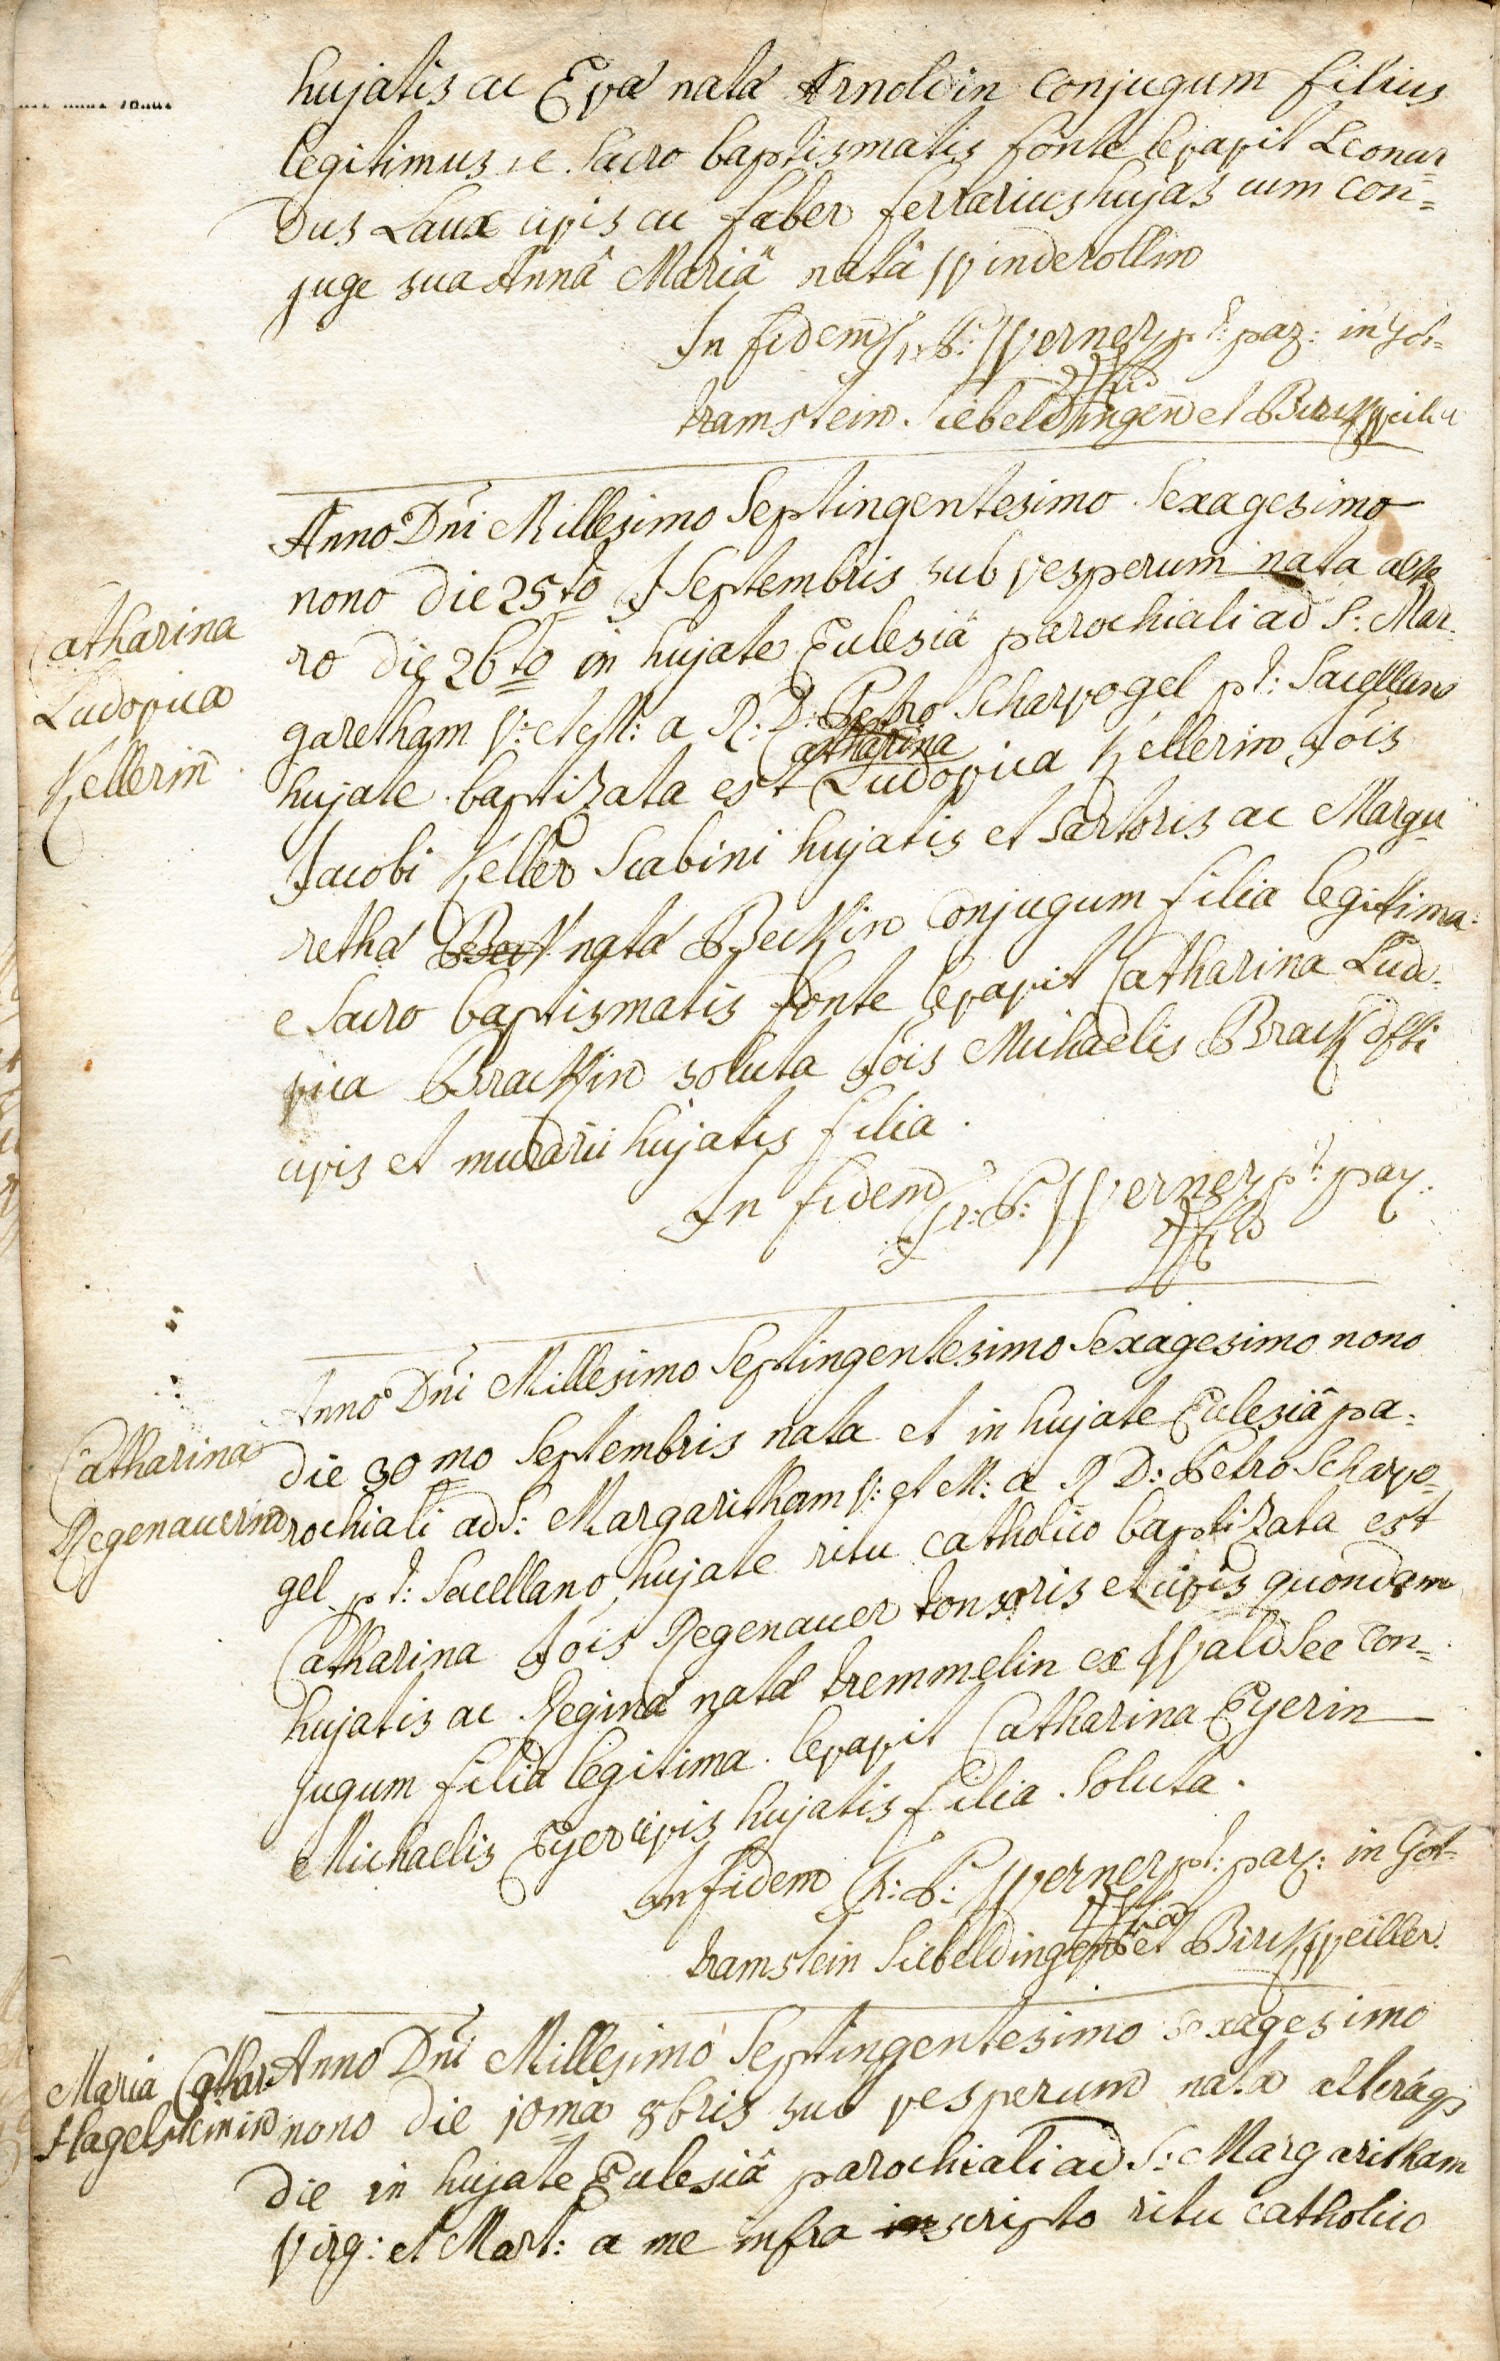 hujatis ac Evâ natâ Arnoldin conjugum filius
legitimus e sacro baptismatis fonte levavit Leonar=
dus Laux civis ac faber ferrarius hujas cum con=
juge sua Annâ Mariâ natâ Winderollin
In fidem Fr: P: Werner pt: par: in Got=
tramstein Siebeldingen et Birckweiler
Anno Dni Millesimo Septingentesimo Sexagesimo
nono die 25to Septembris sub vesperum nata alte
ro die 26to in hujate Eclesiâ parochiali ad S: Mar=
Catharina
garetham V: et M: a R: D: Petro Scharvogel pt: Sacellano
Ludovica
Catharina
hujate baptizata est Ludovica Kellerin Jois
Kellerin
Jacobi Keller Scabini hujatis et Sartoris ac Marga=
rethâ natâ Beckin conjugum filia legitima
e sacro baptismatis fonte levavit Catharina Ludo=
vica Brackin soluta Jois Michaelis Brack dfti
civis et murarii hujatis filia.
In fidem Fr: P: Werner pt: par:
Anno Dni Millesimo Septingentesimo Sexagesimo nono
die 30mo Septembris nata et in hujate Eclesiâ pa=
Catharina
rochiali ad S: Margaritham V: et M: a R D: Petro Scharvo=
Regenauerin
gel pt: Sacellano hujate ritu catholico baptizata est
Catharina Jois Regenauer tonsoris et civis quondam
hujatis ac Reginâ natâ tremmelin ex Waldsee con=
jugum filia legitima. levavit Catharina Eyerin
Michaelis Eyer civis hujatis filia soluta.
In fidem Fr: P: Werner pt: par: in Got=
tramstein Siebeldingen et Birckweiller.
Anno Dni Millesimo Septingentesimo sexagesimo
Maria Cathar
nono die 10ma 8bris sub vesperum nata alterâq;
Hagelsteinin
die in hujate Eclesiâ parochiali ad S: Margaritham
Virg: et Mart: a me infra scripto ritu catholico